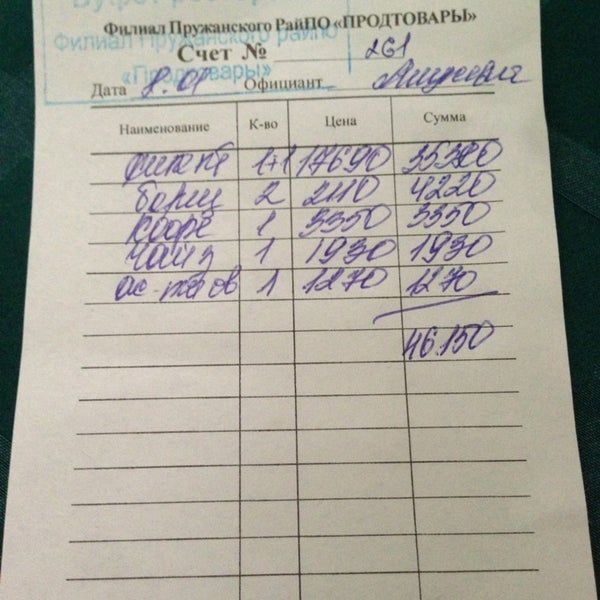 Филиал Пружанского РайПО «ПРОДТОВАРЫ»
Филиал Пружанского райпо
«Продтовары»
Счет № 261
Дата 8.01 Официант
Наименование К-во Цена Сумма
1+1 17690 35380
борщ 2 2110 4220
кофе 1 3350 3350
чай 1 1930 1930
1 1270 1270
46.150